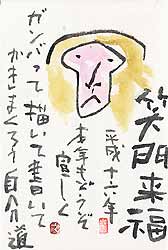 笑門来福
平成十六年
お年もどうぞ
宜しく
ガンバって描いて書いて
かきまくろう自分道